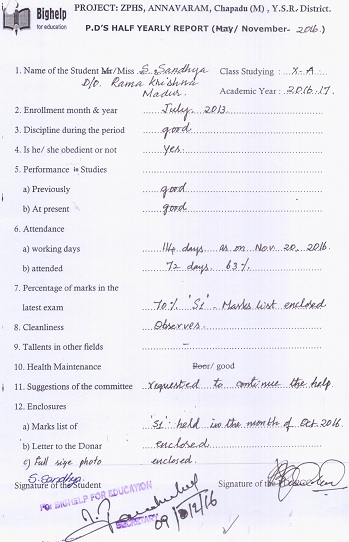 Bighelp
for education
PROJECT: ZPHS, ANNAVARAM, Chapadu (M) , Y.S.R. District.
P.D'S HALF YEARLY REPORT (May/ November- 2016.)
1. Name of the Student Mr/Miss S. Sandhya Class Studying : X-A
D/o. Rama Krishna Academic Year : 2016.17.
Madur.
2. Enrollment month & year July. 2013.
3. Discipline during the period good
4. Is he/ she obedient or not yes.
5. Performance in Studies
a) Previously good
b) At present good
6. Attendance
a) working days 114 days as on Nov 20, 2016.
b) attended 72 days. 63%
7. Percentage of marks in the
latest exam 70% 'S1' - Marks List enclosed
8. Cleanliness Observes.
9. Tallents in other fields -
10. Health Maintenance Poor/ good
11. Suggestions of the committee requested to continue the help.
12. Enclosures
a) Marks list of 'S1' held in the month of Oct. 2016.
b) Letter to the Donar enclosed
c) Full size photo enclosed.
S. Sandhya
Signature of the Student Signature of the
For BIGHELP FOR EDUCATION
SECRETARY
09/12/16